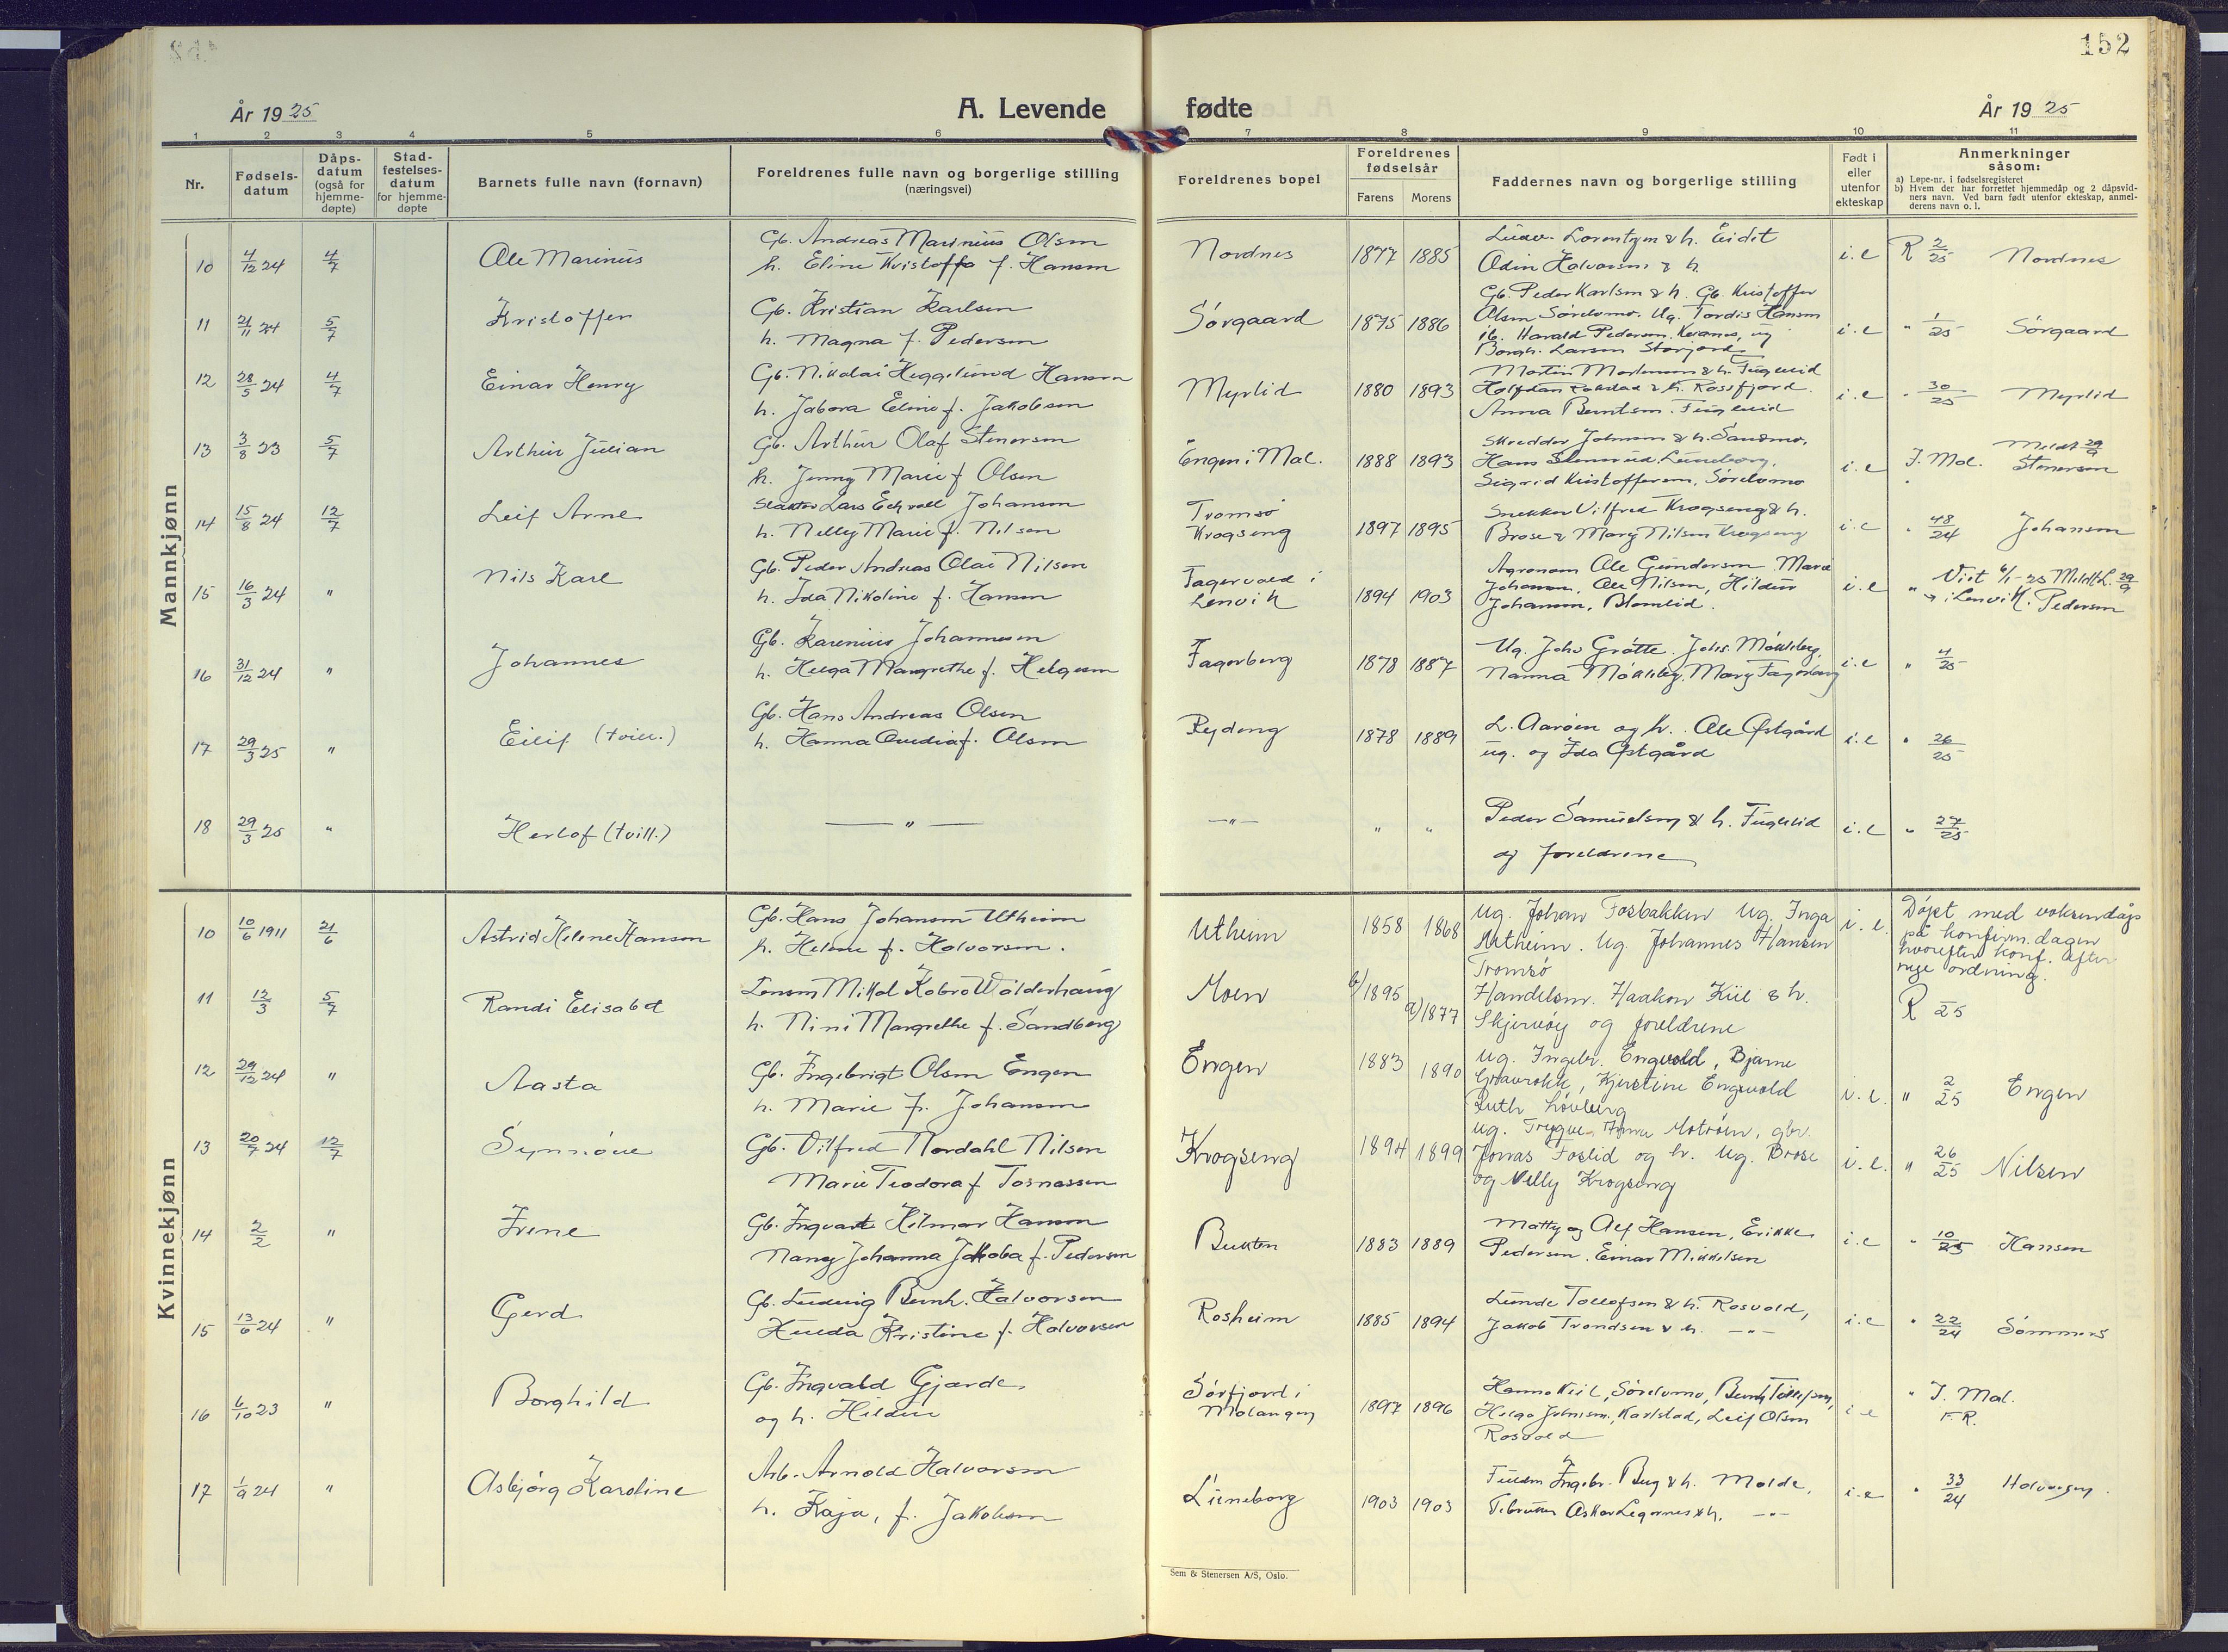 152
År 19 25
A. Levende fødte
År 19 25
1 2 3 4 5 6 7 8 9 10 11
Nr.
Fødsels-
datum
Dåps-
datum
(også for
hjemme-
døpte)
Stad-
festelses-
datum
for hjemme-
døpte
Barnets fulle navn (fornavn)
Foreldrenes fulle navn og borgerlige stilling
(næringsvei)
Foreldrenes bopel
Foreldrenes
fødselsår
Farens Morens
Faddernes navn og borgerlige stilling
Født i
eller
utenfor
ekteskap
Anmerkninger
såsom:
a) Løpe-nr. i fødselsregisteret
b) Hvem der har forrettet hjemmedåp og 2 dåpsvid-
ners navn. Ved barn født utenfor ekteskap, anmel-
derens navn o. l.
Mannkjønn
10 4/12 24 4/7 Ole Marinius
Gb. Andreas Marinius Olsen
h. Eline Kristoffa f. Hansen
Nordnes 1877 1885
Ludv. Lorentzen & h. Eidet
Odin Halvorsen & h.
i.e R 2/25 Nordnes
11 21/11 24 5/7 Kristoffer
Gb. Kristian Karlsen
h. Magna f. Pedersen
Sørgaard 1875 1886
Gb. Peder Karlsen & h. Gb. Kristoffer
Olsen Sørelvmo. Ug. Tordis Hansen
ib. Harald Pedersen, Kvanes, ug
Borgh. Larsen Storjord
i.e " 1/25 Sørgaard
12 28/5 24 4/7 Einar Henry
Gb. Nikolai Heggelund Hansen
h. Jabora Eline f. Jakobsen
Myrlid 1880 1893
Martin Mortensen & h. Fuglelid
Halfdan Rokstad & h. Rossfjord.
Anna Berntsen. Fuglelid
i.e " 30/25 Myrlid
13 3/8 23 5/7 Arthur Julian
Gb. Arthur Olaf Stenersen
h. Jenny Marie f Olsen
Engen i Mal. 1888 1893
Skredder Johnsen & h. Sandmo,
Hans Lüneborg,
Sigrid Kristoffersen, Sørelvmo
i.e F. Mal. Meldt 29/9
Stenersen
14 15/8 24 12/7 Leif Arne
Slakter Lars Johansen
h. Nelly Marie f. Nilsen
Tromsø
Krogseng
1897 1895
Snekker Vilfred Krogseng & h.
Brose & Mary Nilsen Krogseng
i.e " 48/24 Johansen
15 16/3 24 " Nils Karl
Gb. Peder Andreas Olai Nilsen
h. Ida Nikoline f. Hansen
Fagervold i
Lenvik
1894 1903
Agronom Ole Gundersen. Marie
Johansen, Ole Nilsen, Hildur
Johansen, Blomlid.
i.e " Viet 6/1-25 Meldt L. 29/9
i Lenvik. Pedersen
16 31/12 24 " Johannes
Gb. Karenius Johannesen
h. Helga Margrethe f. Helgesen
Fagerberg 1878 1887
Ug. Johs Grøtte. Johs. Målsberg,
Nanna Målsberg. Mary Fagerberg
i.e " 4/25
17 29/3 25 " Eilif (tvill.)
Gb. Hans Andreas Olsen
h. Hanna Ovedia f. Olsen
Rydeng 1878 1889
L. Aarøen og h. Ole Østgård
ug. og Ida Østgård
i.e " 26/25
18 29/3 25 " Herlof (tvill.)
— " —
—"— " "
Peder Samuelsen & h. Fuglelid
og foreldrene
i.e " 27/25
Kvinnekjønn
10 10/6 1911 21/6 Astrid Helene Hansen
Gb. Hans Johansen Utheim
h. Helene f. Halvorsen.
Utheim 1858 1868
Ug. Johan Fosbakken Ug. Inga
Utheim. Ug. Johannes Hansen
Tromsø
i. e.
Døpt med voksendåp
på konfirm. dagen
hvorefter konf. efter
nye ordning.
11 12/3 5/7 Randi Elisabet
Lensm Mikal Kobro Wolderhaug
h. Nini Margrethe f. Sandberg
Moen b/1895 a)1877
Handelsm. Haakon Kiil & h.
Skjervøy og foreldrene
R 25
12 29/12 24 " Aasta
Gb. Ingebrigt Olsen Engen
h. Marie f. Johansen
Engen 1883 1890
Ug. Ingebr. Engvold, Bjarne
Gravrokk, Kjerstine Engevold
Ruth Løvberg
i. e. " 2/25 Engen
13 20/7 24 12/7 Synnøve
Gb. Vilfred Nordahl Nilsen
Marie Teodora f Tomassen
Krogseng 1894 1899
Ug. Trygve, Anna Motrøen, gbr.
Jonas Foslid og h. Ug. Brose
og Nelly Krogseng
i. e. " 26/25 Nilsen
14 2/2 " Irene
Gb. Ingvart Hilmar Hansen
Nancy Johanna Jakoba f. Pedersen
Bukten 1883 1889
Matty og Alf Hansen, Erikke
Pedersen. Einar Mikkelsen
i.e " 10/25 Hansen
15 13/6 24 " Gerd
Gb. Ludvig Bernh. Halvorsen
Hulda Kristine f. Halvorsen
Rosheim 1885 1894
Lunde Tollefsen & h. Rosvold,
Jakob Trondsen & h. —"—
i.e " 22/24
16 6/10 23 " Borghild
Gb. Ingvald Gjærde
og h. Hildur
Sørfjord i
Malangen
1897 1896
Hanna Kiil, Sørelvmo, Bernh Tollefsen,
Helga Johnsen, Karlstad, Leif Olsen
Rosvold
i e " F. Mal.
F. R.
17 1/9 24 " Asbjørg Karoline
Arb. Arnold Halvorsen
h. Kaja, f. Jakobsen
Lüneborg 1903 1903
Ingebr. Berg & h. Molde,
Oskar Legernes & h. —"—
i.e " 33/24 Halvorsen.
Sem & Stenersen A/S, Oslo.